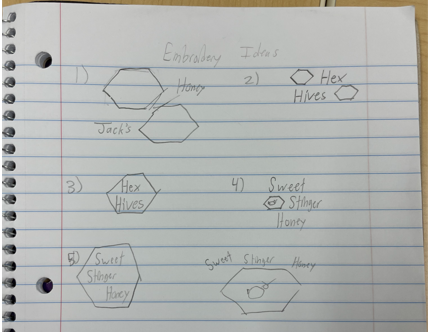 Embroidery Ideas
1)
Honey
Jack's
2) Hex
Hives
3) Hex
Hives
4) Sweet
Stinger
Honey
5) Sweet
Stinger
Honey
Sweet Stinger Honey